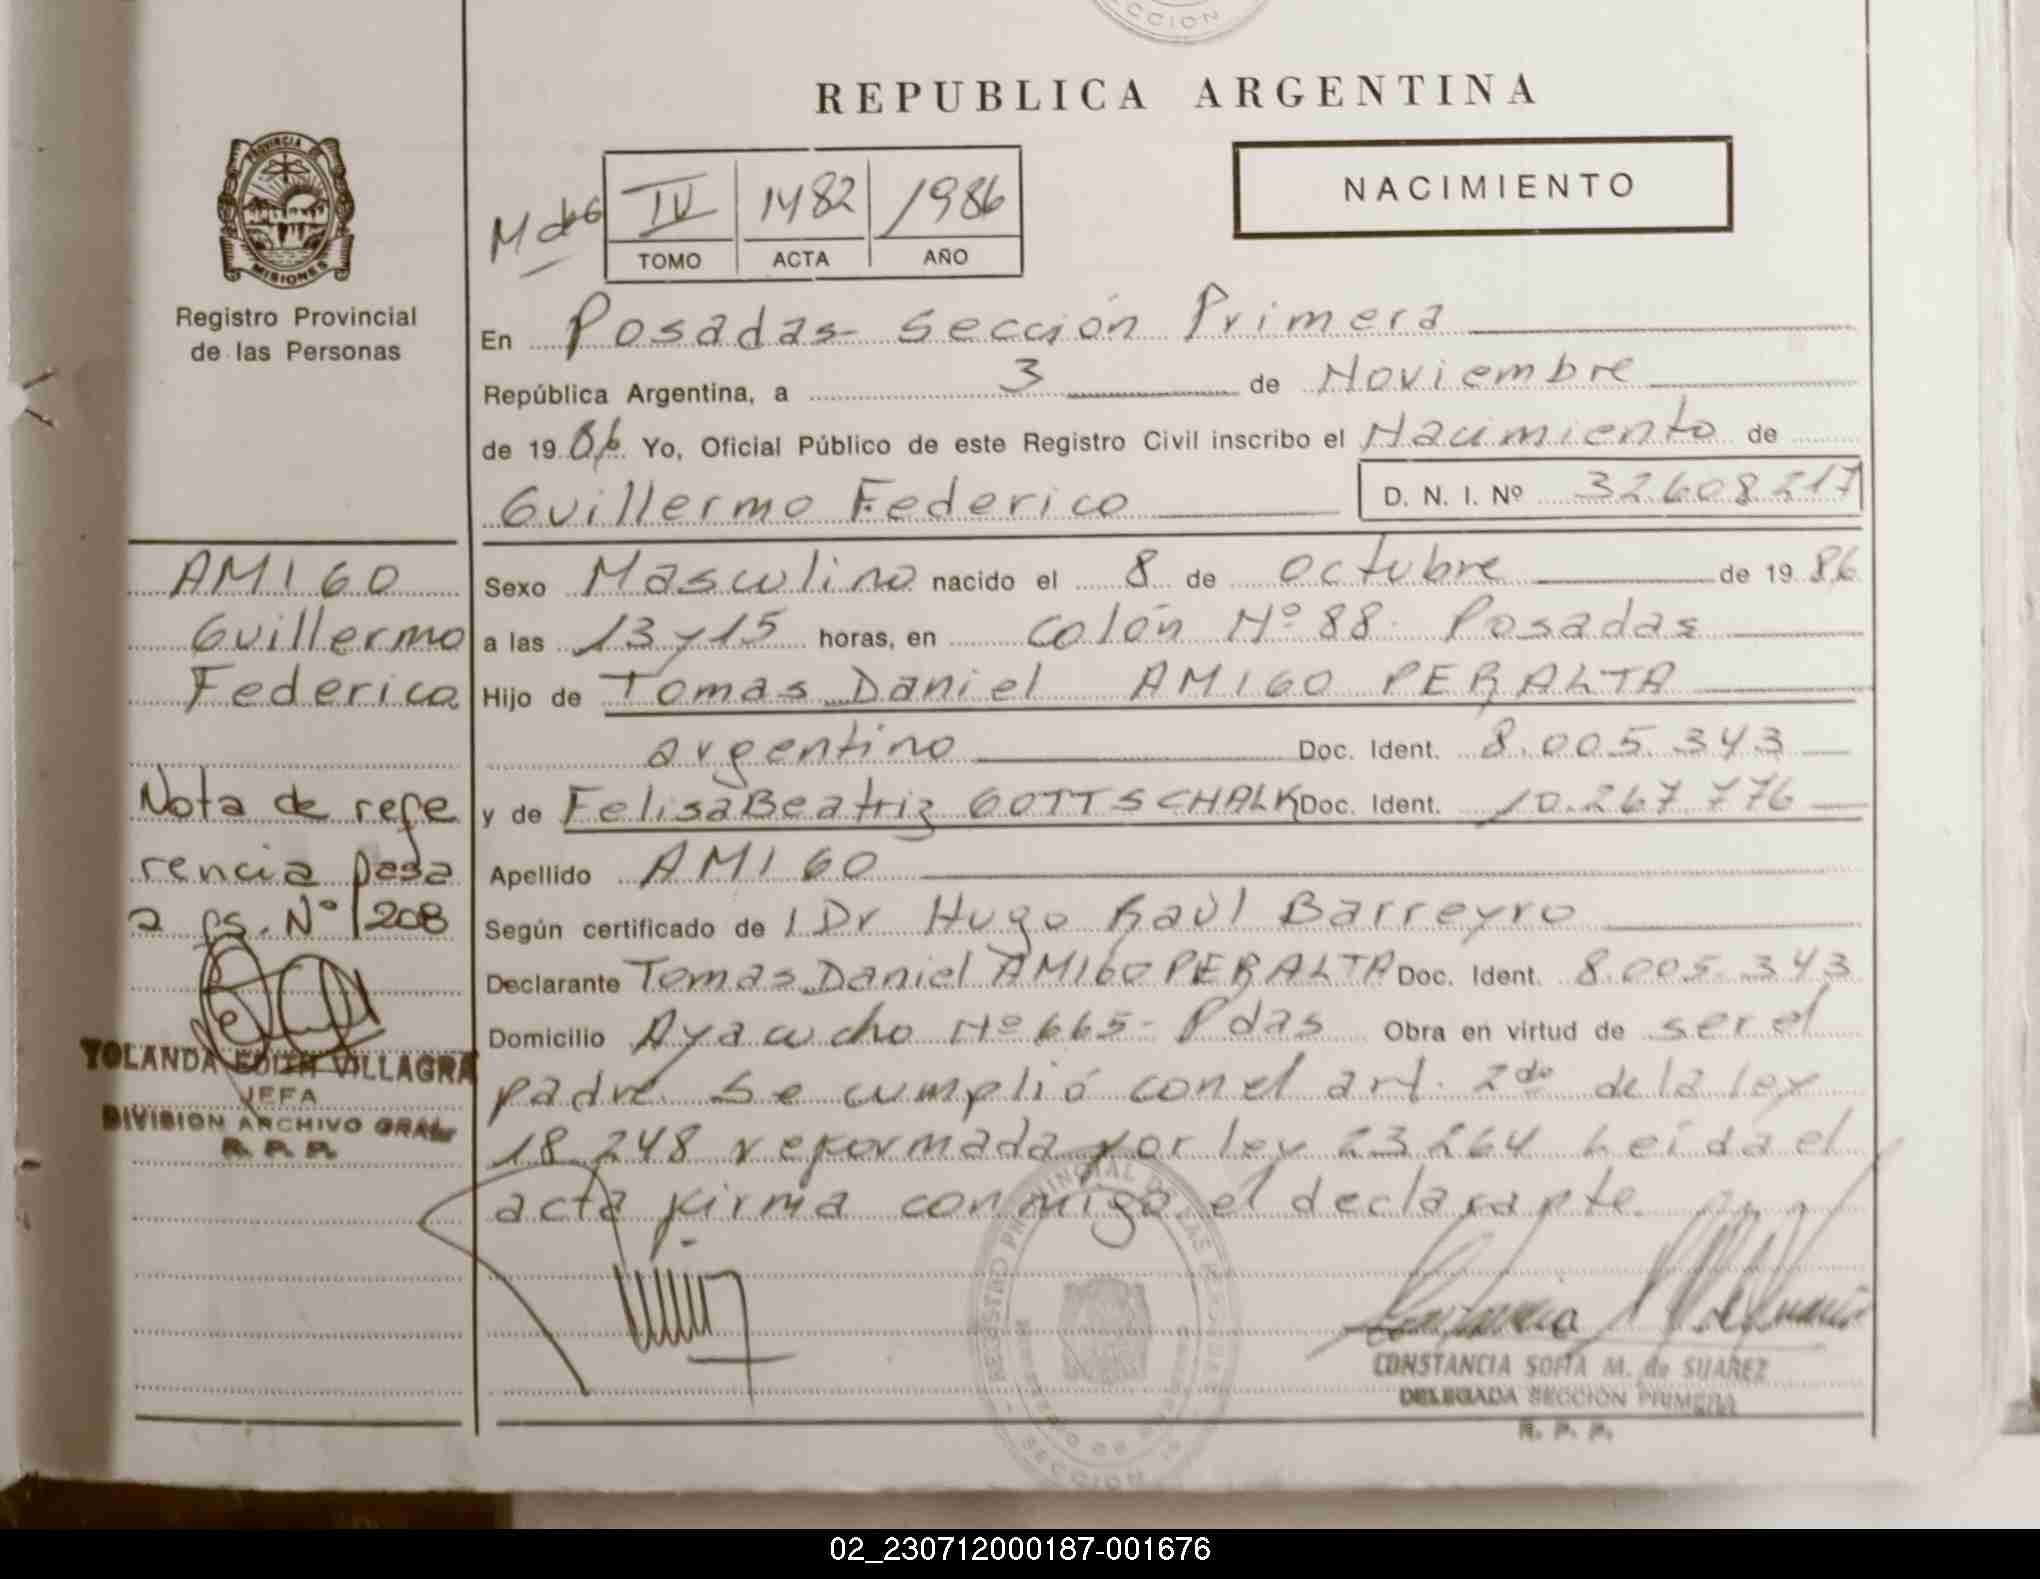 CCION
REPUBLICA ARGENTINA
PROVINCIA DE
MISIONES
Registro Provincial
de las Personas
NACIMIENTO
IV 1482 1986
TOMO ACTA AÑO
En Posadas- Sección Primera
República Argentina, a 3 de Noviembre
de 19 86 Yo, Oficial Público de este Registro Civil inscribo el Nacimiento de
Guillermo Federico D. N. I. Nº 32608217
AMIGO
Guillermo
Federico
Sexo Masculino nacido el 8 de octubre de 19 86
a las 13 y 15 horas, en Colón Nº 88. Posadas
Hijo de Tomas Daniel AMIGO PERALTA
argentino Doc. Ident. 8.005.343
y de Felisa Beatriz GOTTSCHALK Doc. Ident. 10.267.776
Apellido AMIGO
Según certificado de 1 Dr Hugo Raúl Barreyro
Declarante Tomas Daniel AMIGO PERALTA Doc. Ident. 8.005.343
Domicilio Ayacucho Nº 665- Pdas Obra en virtud de ser el
padre. Se cumplió con el art. 2do de la ley
18.248 reformada por ley 23264 Leída el
acta firma conmigo el declarante.
Nota de refe
rencia pasa
a fs. Nº 1208
YOLANDA EDITH VILLAGRA
JEFA
DIVISION ARCHIVO GRAL
R. P. P.
CONSTANCIA SOFIA M. de SUAREZ
DELEGADA SECCION PRIMERA
R. P. P.
REGISTRO PROVINCIAL DE LAS PERSONAS
SECCION 1ª
02_230712000187-001676